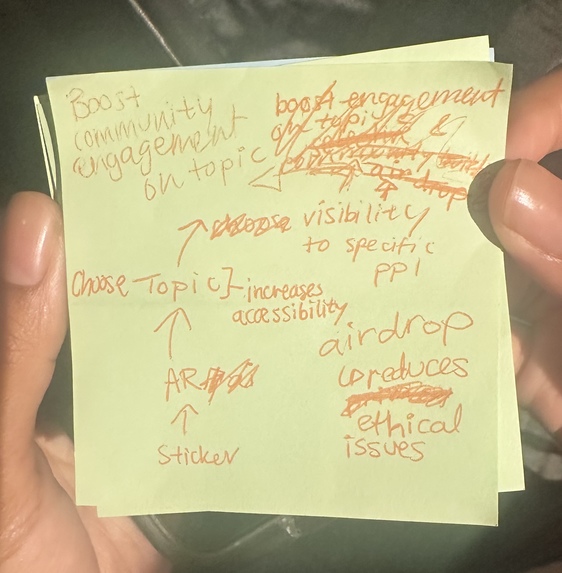 Boost
community
engagement
on topic
boost engagement
on topic &
community
airdrop
visibility
to specific
ppl
Choose Topic] - increases
accessibility
AR
Sticker
airdrop
↳ reduces
ethical
issues